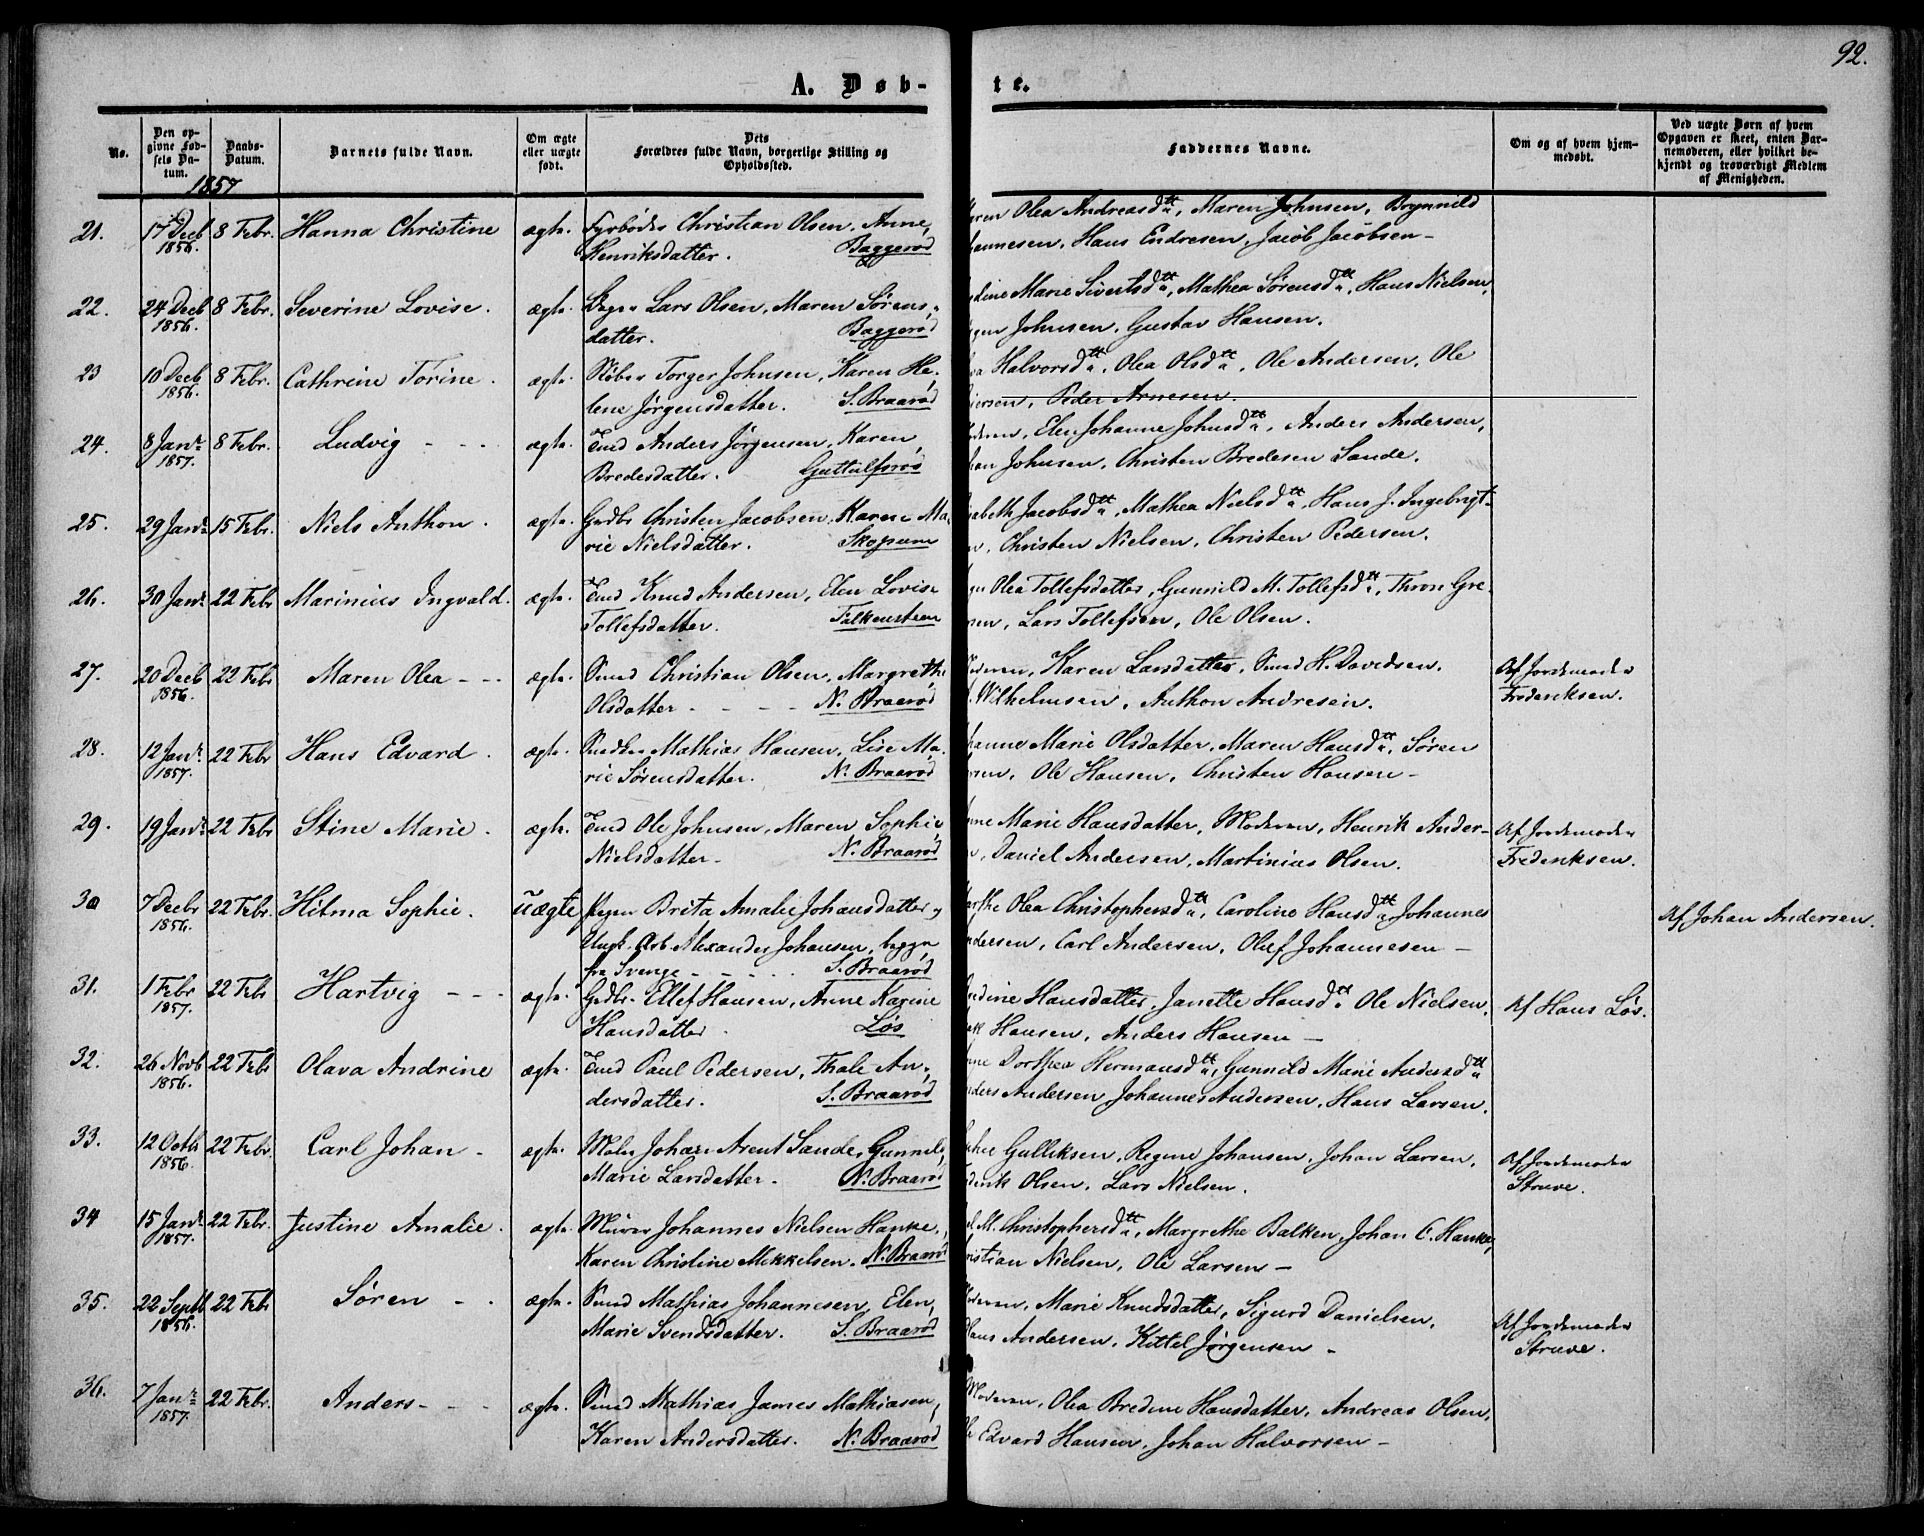 92.
A. Døb-
te.
No.
Den op-
givne Fød-
sels Da-
tum.
Daabs-
Datum.
Barnets fulde Navn.
Om ægte
eller uægte
født.
Dets
Forældres fulde Navn, borgerlige Stilling og
Opholdssted.
Faddernes Navne.
Om og af hvem hjem-
medøbt.
Ved uægte Børn af hvem
Opgaven er skeet, enten Bar-
nemoderen, eller hvilket be-
kjendt og troværdigt Medlem
af Menigheden.
1857
21. 17 Decb 1856. 8 Febr. Hanna Christine ægte. Fyrbøder Christian Olsen, Anne
Henriksdatter. Baggerød
Olea Andreasdtt, Maren Johnsen, Brynnild
Hans Endresen, Jacob Jacobsen –
22. 24 Decb 1856. 8 Febr. Severine Lovise. ægte. Lars Olsen, Maren Sørens-
datter. Baggerød
Marie Sivertsdtt, Mathea Sørensdtt, Hans Nielsen,
Johnsen, Gustav Hansen.
23 10 Decb 1856. 8 Febr. Cathrine Torine. ægte. Torger Johnsen, Karen He-
lene Jørgensdatter. S. Braarød
Halvorsdtt, Olea Olsdtt, Ole Andersen, Ole
Peder Arnesen.
24. 8 Janr 1857. 8 Febr. Ludvig - - - ægte. Tmd Anders Jørgensen, Karen
Bredesdatter. Guttulfsrød
Elen Johanne Johnsdtt, Anders Andersen,
Johnsen, Christen Bredesen Sande.
25. 29 Janr 15 Febr. Niels Anthon. ægte. Grdbr Christen Jacobsen, Karen Ma-
rie Nielsdatter. Skopum
Jacobsdtt, Mathea Nielsdtt, Hans J. Ingebrigt-
Christen Nielsen, Christen Pedersen.
26. 30 Janr 22 Febr Marinius Ingvald. ægte. Tmd Knud Andersen, Elen Lovise
Tollefsdatter. Falkensteen
Olea Tollefsdatter, Gunnild M. Tollefsdtt, Thron Gre-
Lars Tollefsen, Ole Olsen.
27. 20 Decb 1856. 22 Febr Maren Olea - - - ægte. Smd Christian Olsen, Margrethe
Olsdatter - - - - N. Braarød
Karen Larsdatter, Smd H. Davidsen,
Wilhelmsen, Anthon Andresen.
Af Jordemoder
Frederiksen.
28. 12 Janr 1857. 22 Febr Hans Edvard. ægte. Mathias Hansen, Lise Ma-
rie Sørensdatter. N. Braarød
Marie Olsdatter, Maren Hansdtt, Søren
Ole Hansen, Christen Hansen –
29. 19 Janr 22 Febr Stine Marie. ægte. Tmd Ole Johnsen, Maren Sophie
Nielsdatter - N. Braarød
Marie Hansdatter, Moderen, Henrik Ander-
Daniel Andersen, Martinius Olsen.
Af Jordemoder
Frederiksen.
30 7 Decbr 1856. 22 Febr. Hilma Sophie. uægte Pigen Brita Amalie Johansdatter og
Ungk. Arb. Alexander Johansen, begge
fra Sverige - - - - S. Braarød
Olea Christophersdtt, Caroline Hansdtt, Johannes
Carl Andersen, Oluf Johannesen –
Af Johan Andersen.
31. 1 Febr 1857. 22 Febr Hartvig - - - ægte. Grdbr. Ellef Hansen, Anne Karine
Hansdatter. Løs
Hansdatter, Janette Hansdtt, Ole Nielsen,
Hansen, Anders Hansen –
Af Hans Løs.
32. 26 Novb 1856. 22 Febr Olava Andrine ægte. Tmd Paul Pedersen, Thale An-
dersdatter. S. Braarød
Dorthea Hermansdtt, Gunnild Marie Andersdtt
Andersen, Johannes Andersen, Hans Larsen.
33. 12 Octb 1856. 22 Febr. Carl Johan - ægte. Maler Johan Arent Sande, Gunnil
Marie Larsdatter. N. Braarød
Gulliksen, Regine Johansen, Johan Larsen,
Olsen, Lars Nielsen.
Af Jordemoder
Struve.
34 15 Janr 1857. 22 Febr. Justine Amalie. ægte. Murer Johannes Nielsen Hanke,
Karen Christine Mikkelsen. N. Braarød
M. Christophersdtt, Margrethe Balken, Johan C. Hanke,
Nielsen, Ole Larsen –
35. 22 Septb 1856. 22 Febr Søren - - ægte. Smd Mathias Johannesen, Elen
Marie Svendsdatter. S. Braarød
Marie Knudsdatter, Sigurd Danielsen,
Andersen, Kittel Jørgensen –
Af Jordemoder
Struve.
36. 7 Janr 1857. 22 Febr. Anders - - - ægte. Smd Mathias James Mathiasen,
Karen Andersdatter. N. Braarød
Moderen, Olea Bredine Hansdatter, Andreas Olsen,
Edvard Hansen, Johan Halvorsen –